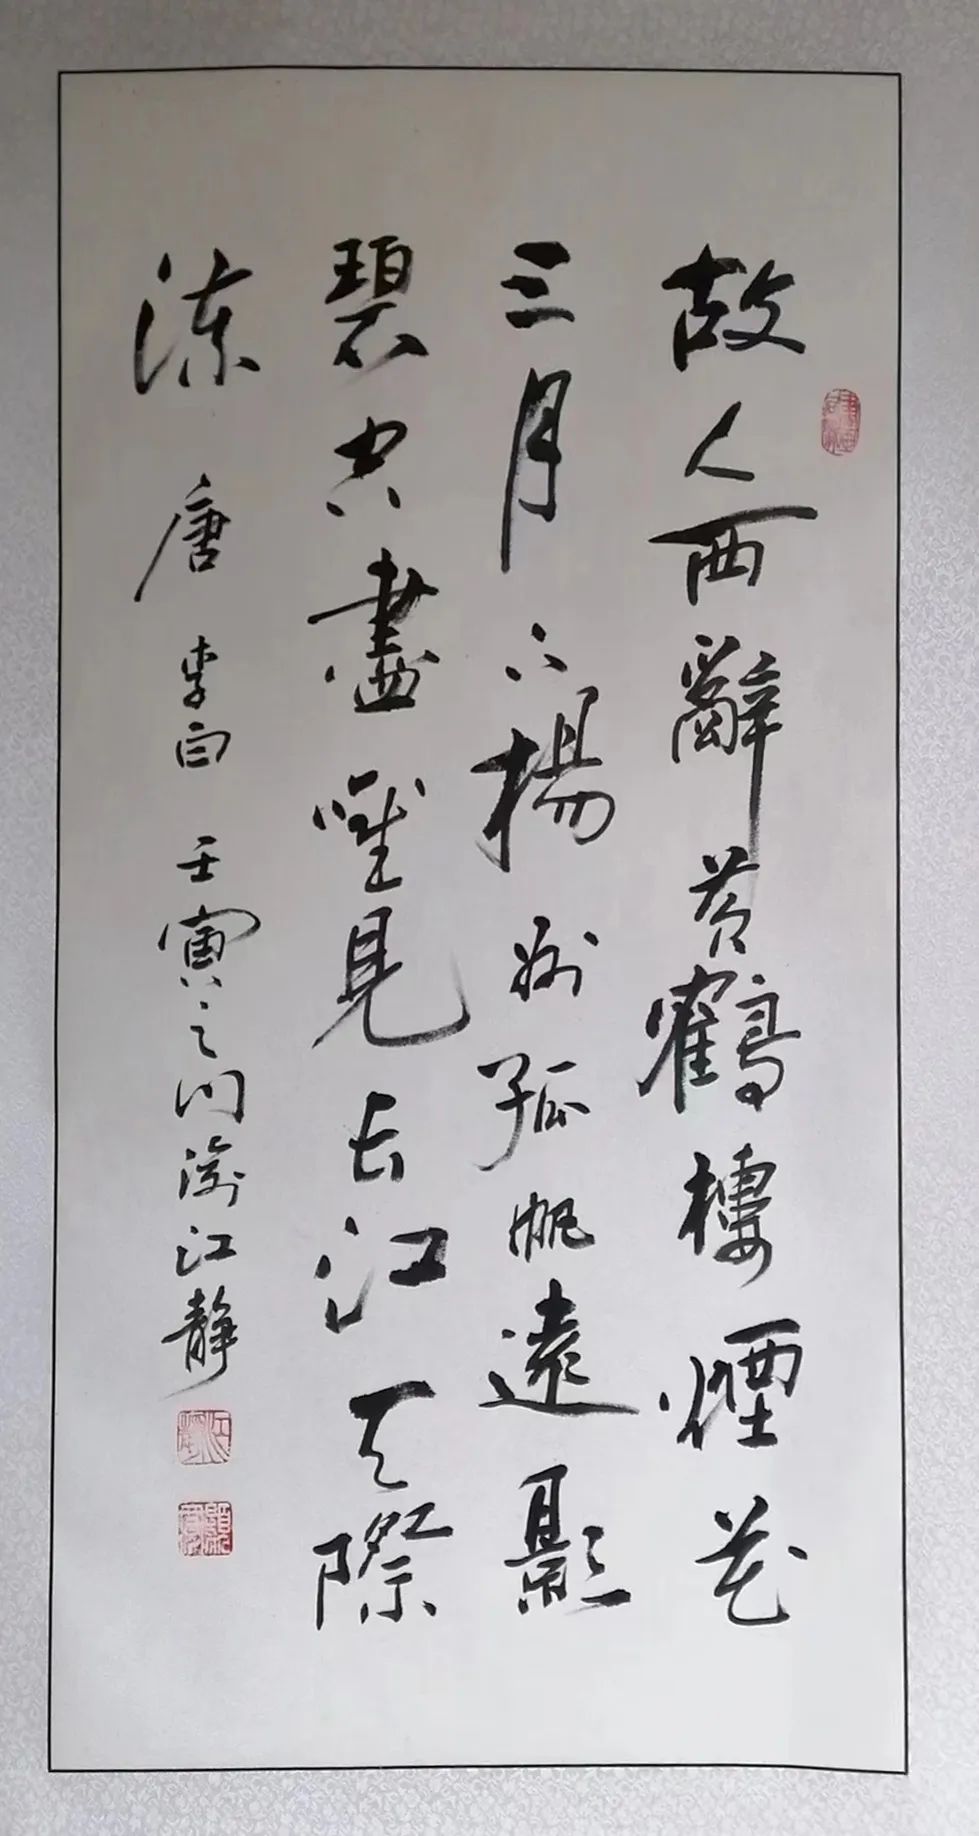 故人西辭黃鶴樓煙花
三月下揚州孤帆遠影
碧空盡唯見長江天際
流 唐 李白 壬寅之閏渝江靜